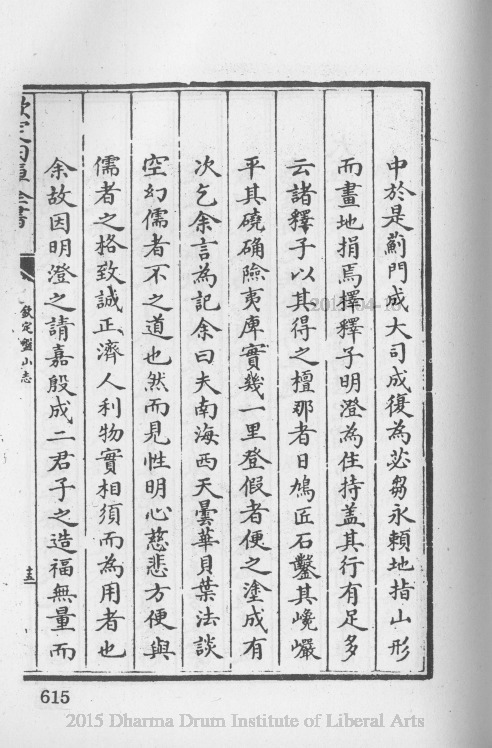 中於是薊門成大司成復為苾芻永賴地指山形
而畫地捐焉擇釋子明澄為住持蓋其行有足多
云諸釋子以其得之檀那者日鳩匠石鑿其巉巖
平其磽确險夷庳實幾一里登假者便之塗成有
次乞余言為記余曰夫南海西天曇華貝葉法談
空幻儒者不之道也然而見性明心慈悲方便與
儒者之格致誠正濟人利物實相須而為用者也
余故因明澄之請嘉殷成二君子之造福無量而
欽定四庫全書
欽定盤山志
十五
615
2015 Dharma Drum Institute of Liberal Arts